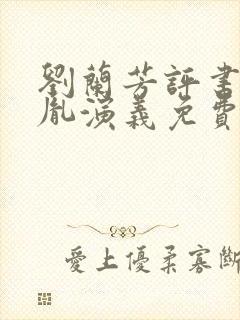 劉蘭芳評書
胤演義免費
愛上優柔寡斷